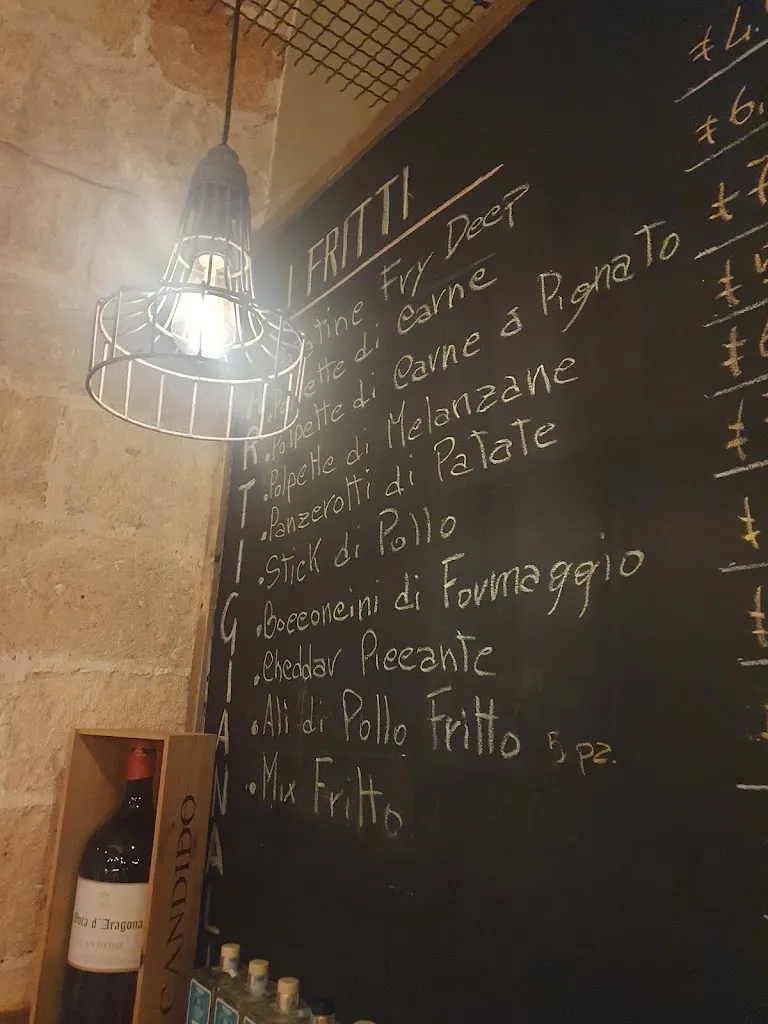 I FRITTI
Fry Deep
di Carne
Polpette di Carne a Pignato
Polpette di Melanzane
Panzerotti di Patate
Stick di Pollo
Bocconcini di Formaggio
Cheddar Piccante
Ali di Pollo Fritto 5 pz.
Mix Fritto
RTIGIANA
€4.
€6.
€7
€
€6
€
€
€
CANDIDO
d'Aragona